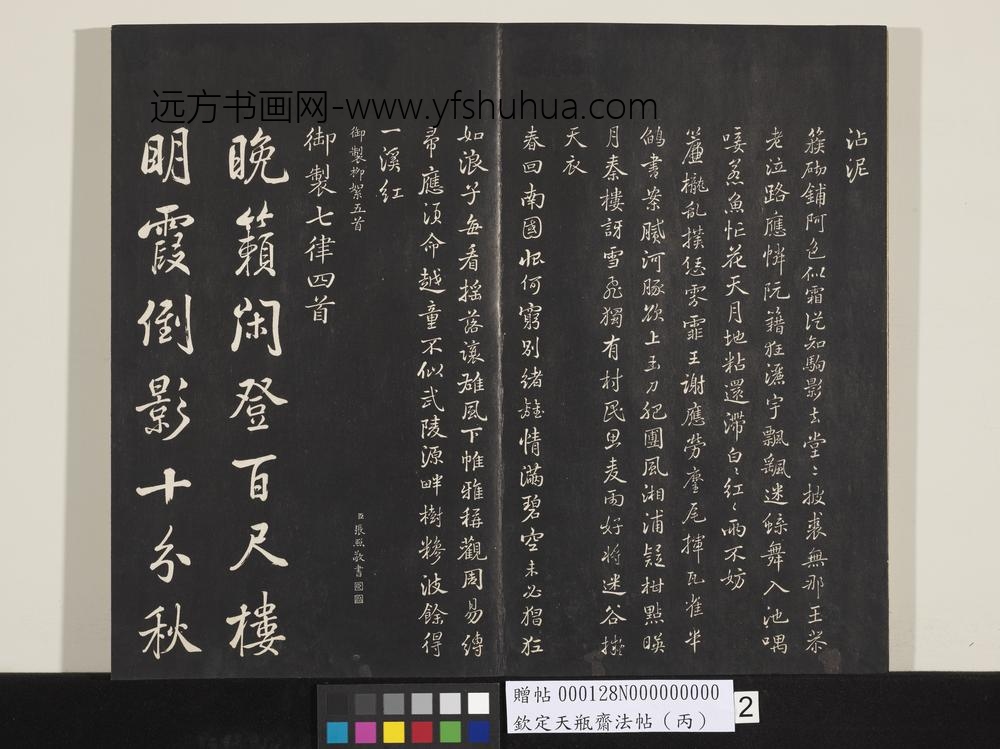 沾泥
簇砌鋪階色似霜從知駒影去堂〻披裘無那王恭
老泣路應憐阮籍狂簷宇飄颻迷鷁舞入池喁
唼惹魚忙花天月地粘還滯白〻紅〻兩不妨
簾櫳乱撲恁霏霏王謝應勞麈尾揮瓦雀半
書案膩河豚欲上玉刀肥團風湘浦疑柑點暎
月秦樓訝雪飛獨有村民思麦雨好將迷谷擁
天衣
春回南國恨何窮別緒離情滿碧空未必猖狂
如浪子每看摇落讓雄風下帷雅稱觀周易縛
帚應須命越童不似武陵源畔樹糝波餘得
一溪紅
御製柳絮五首
臣張照敬書
御製七律四首
晚籟閑登百尺樓
明霞倒影十分秋
远方书画网-www.yfshuhua.com
贈帖 000128N000000000
欽定天瓶齋法帖（丙）
2